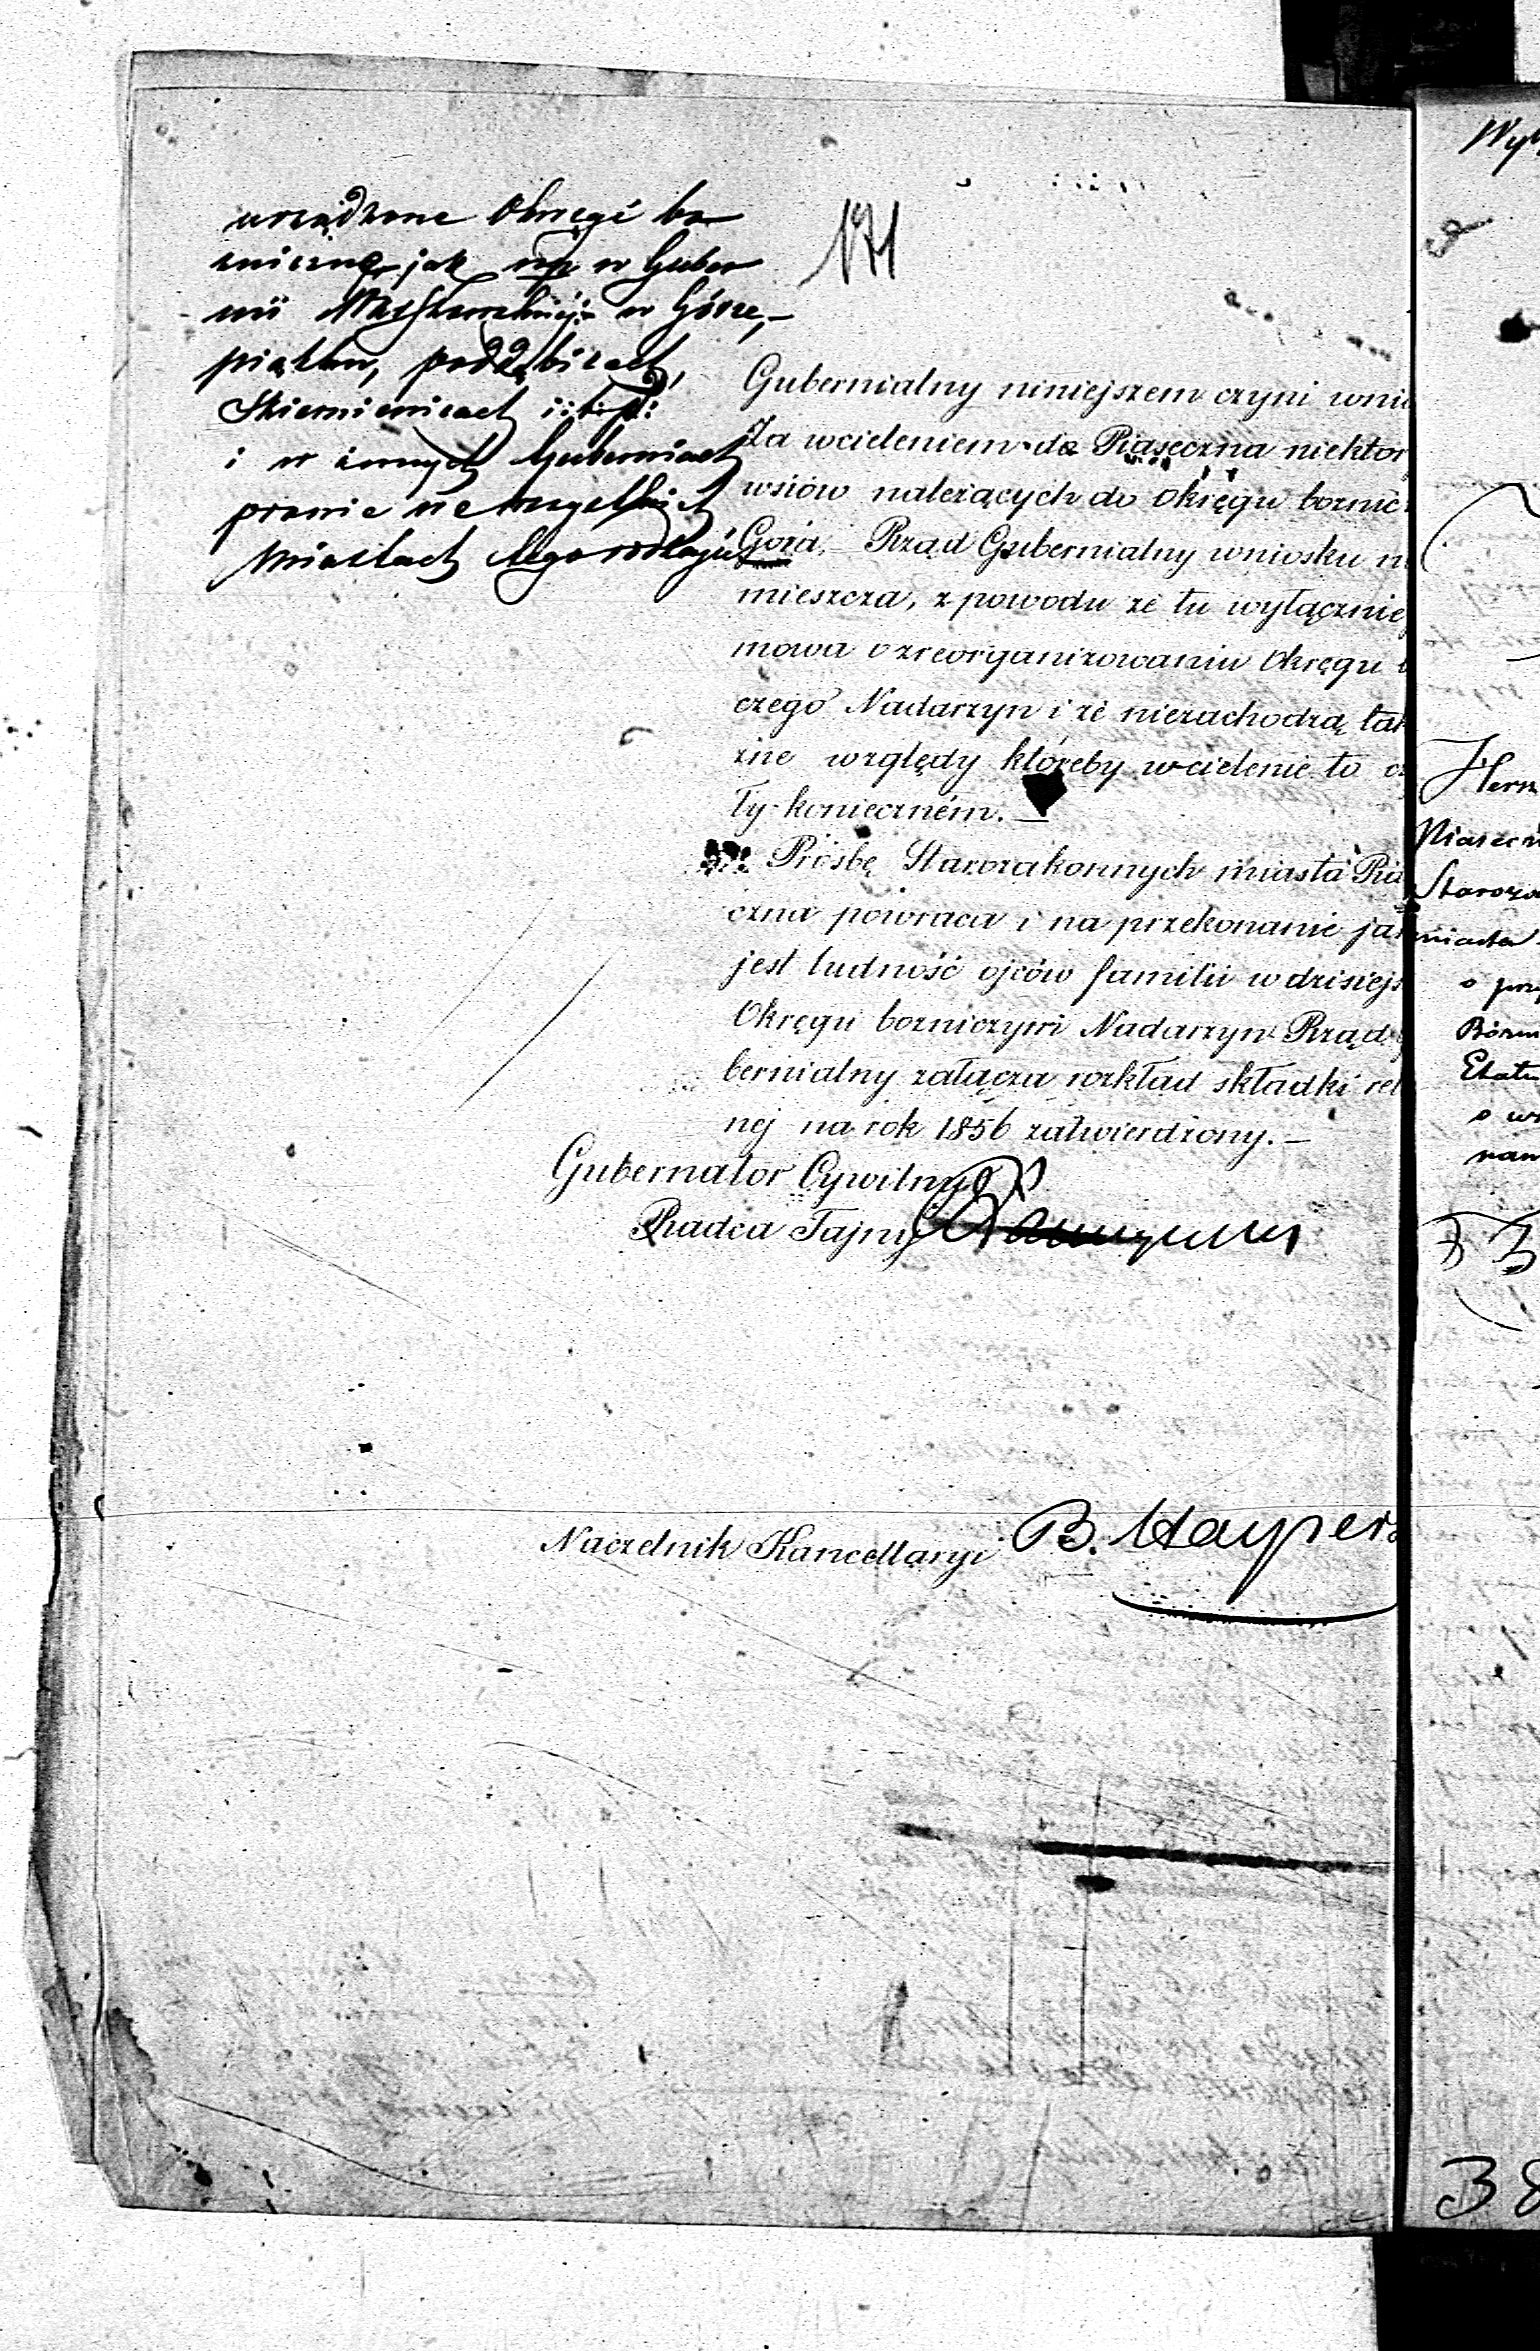 urządzone Okręgi bo
źnicze jak np w Guber
nii Warszawskiej: w Górze,
piątku, poddębicach,
Skierniewicach i: t: p:
i w innych Guberniach
prawie we wszystkich
miastach tego rodzaju
171
Gubernialny niniejszem czyni wnio
Za wcieleniem do Piaseczna niektór
wsiów należących do okręgu bożnic
Góra, — Rząd Gubernialny wniosku n
mieszcza, z powodu że tu wyłącznie
mowa o zreorganizowaniu Okręgu
czego Nadarzyn i że niezachodzą tak
żne względy któreby wcielenie to c
ły konieczném. —
Prośbę Starozakonnych miasta Pia
czna powraca i na przekonanie jak
jest ludność ojców familii w dzisiejs
Okręgu bożniczym Nadarzyn Rząd
bernialny załącza rozkład składki rel
nej na rok 1856 zatwierdzony. —
Gubernator Cywilny
Radca Tajny
Naczelnik Kancellaryi B.
Wy
Piasecz
Staroza
miasta
o prz
Bóżn
Etatu
o
38